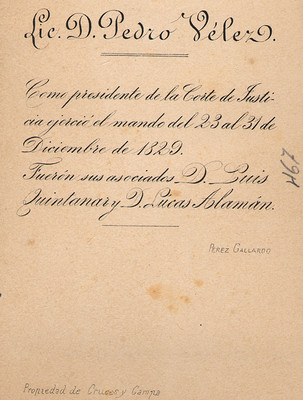 Lic. D. Pedro Vélez.
Como presidente de la Corte de Justi-
cia ejerció el mando del 23 al 31 de
Diciembre de 1829.
Fuerón sus asociados D. Luis
Quintanar y D. Lúcas Alamán.
794
PEREZ GALLARDO
Propiedad de Cruces y Campa